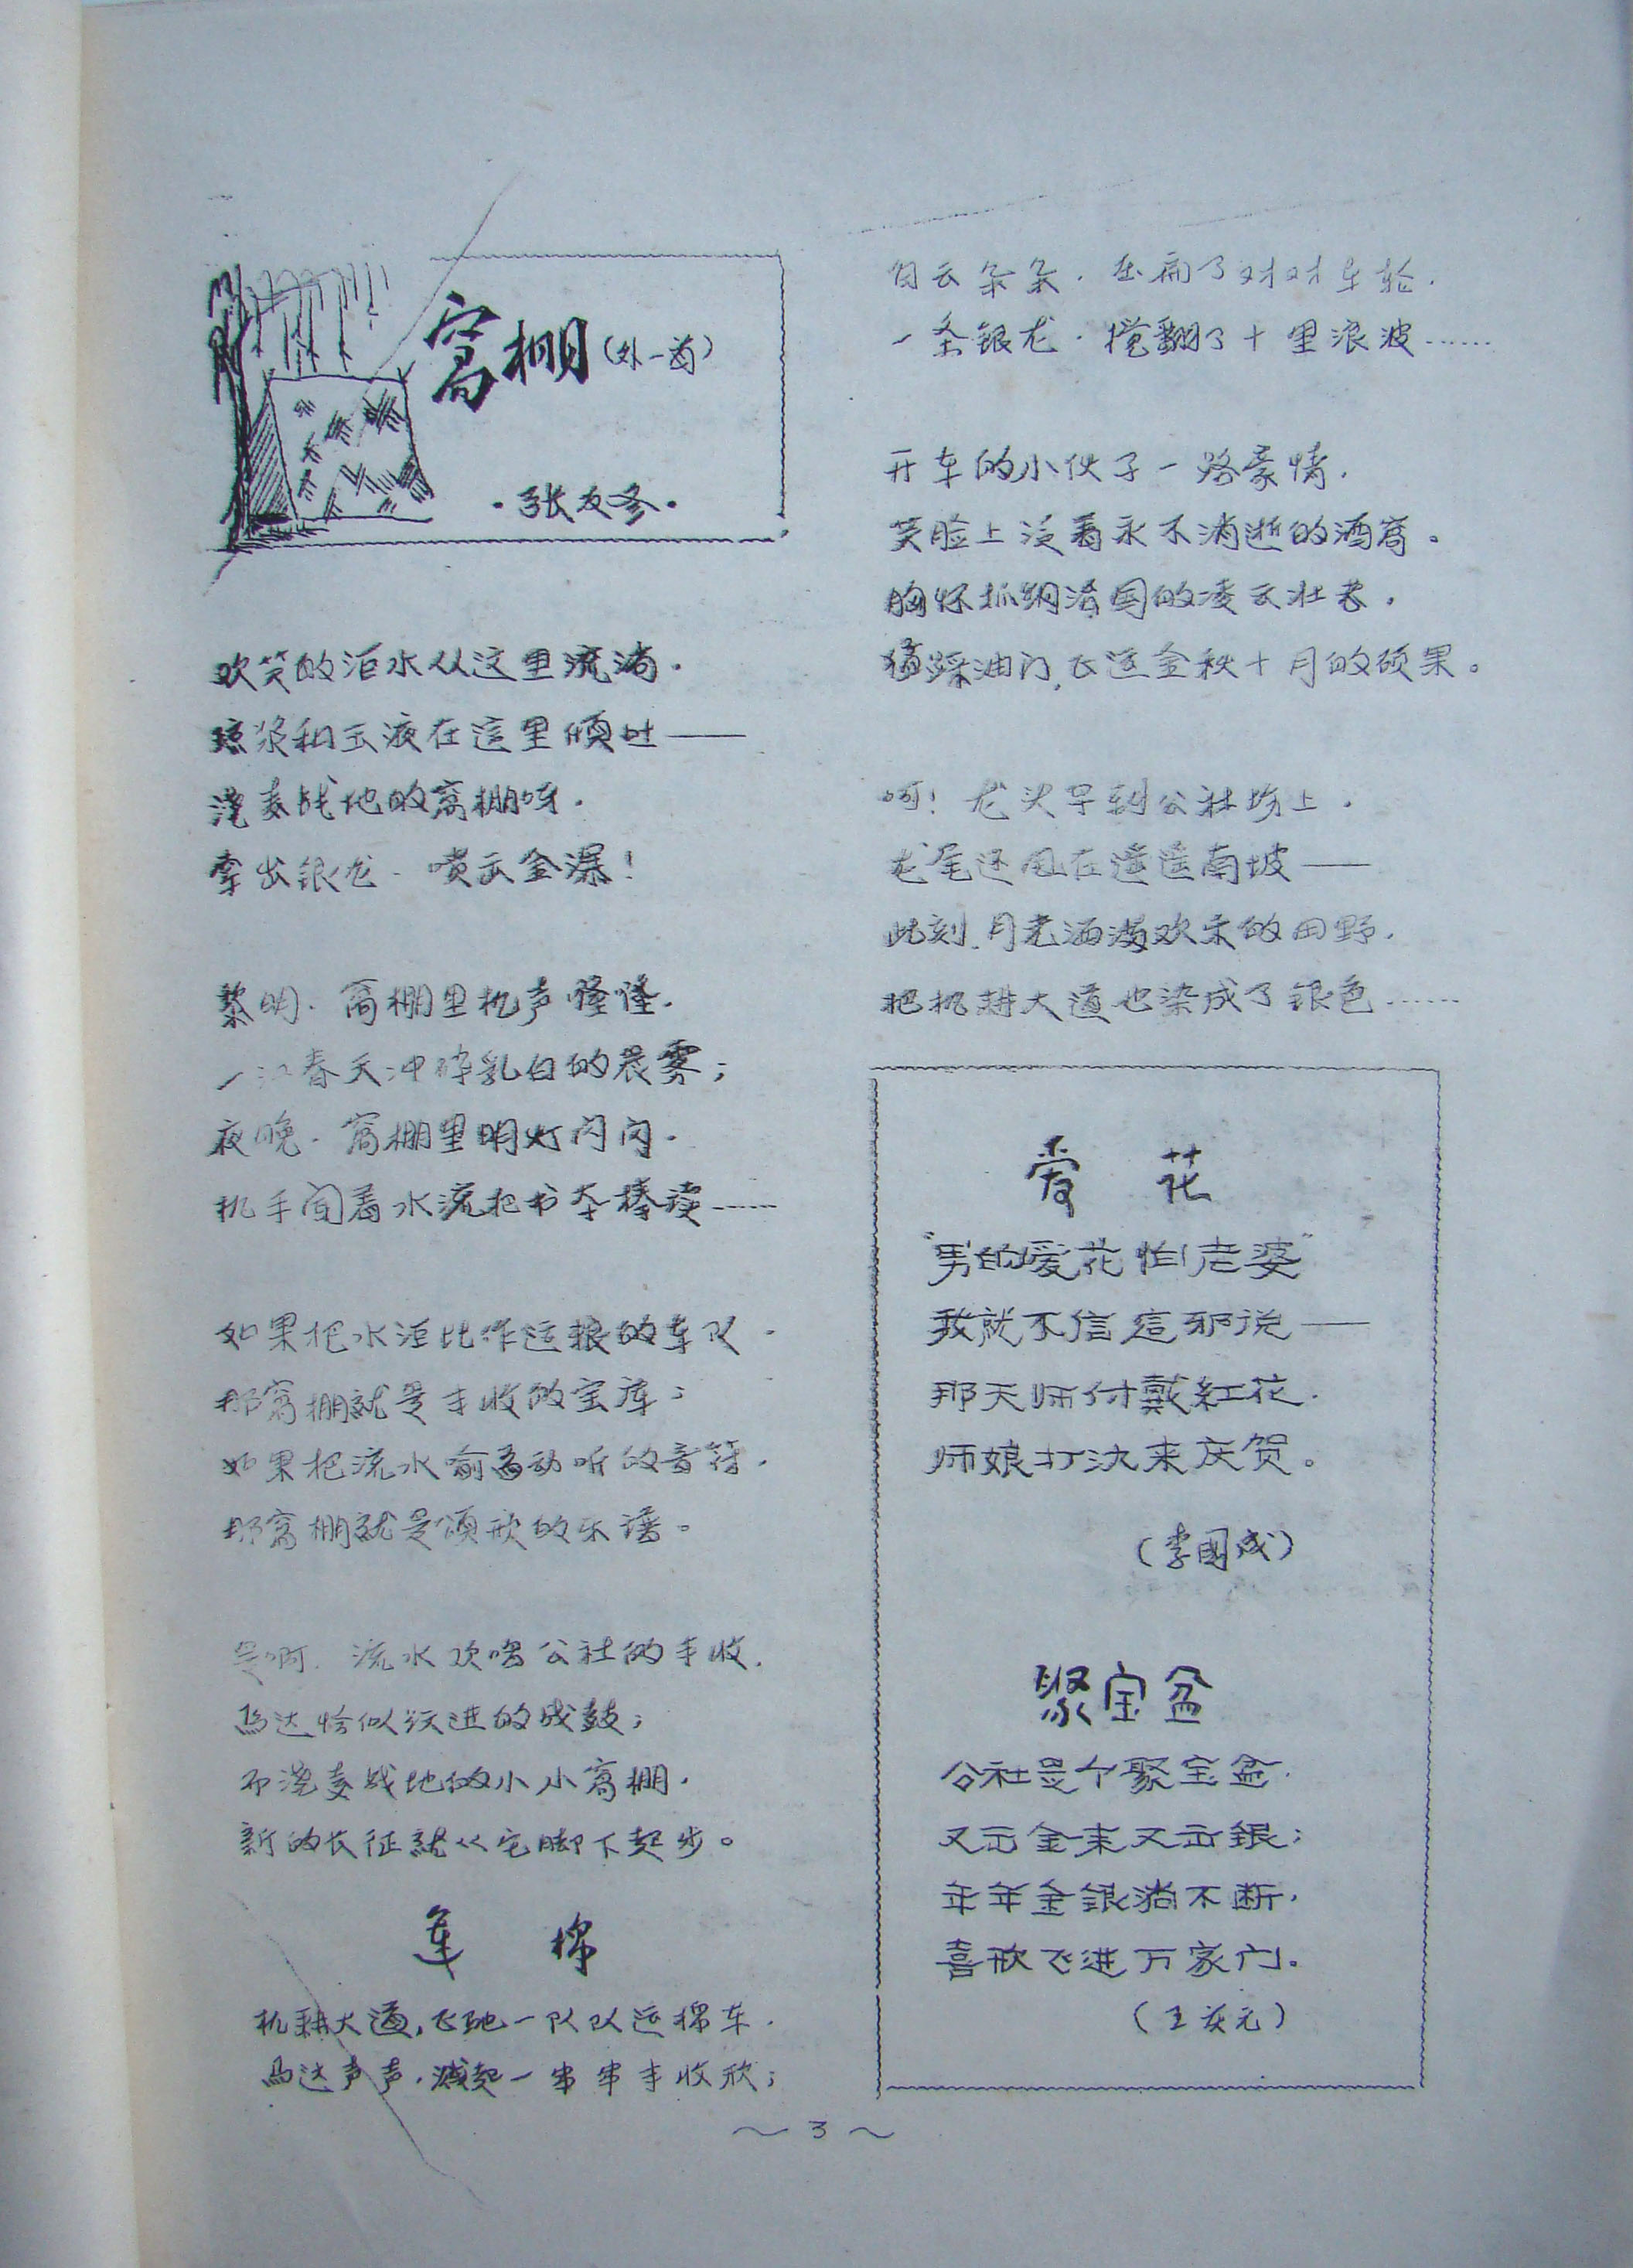 窝棚（外一首）
·张友冬·
欢笑的渠水从这里流淌，
琼浆和玉液在這里倾吐——
浇麦战地的窝棚呀，
牵出银龙，喷出金瀑！
黎明，窝棚里机声隆隆，
一江春天冲碎乳白的晨雾；
夜晚，窝棚里明灯闪闪，
机手闻着水流把书本捧读……
如果把水渠比作运粮的车队，
那窝棚就是丰收的宝库；
如果把流水喻为动听的音符，
那窝棚就是颂歌的乐谱。
是啊，流水欢唱公社的丰收，
馬达恰似跃进的战鼓；
而浇麦战地的小小窝棚，
新的长征就从它脚下起步。
运 棉
机耕大道，飞驰一队队运棉车，
馬达声声，溅起一串串丰收歌；
白云朵朵，压扁了对对车轮，
一条银龙，搅翻了十里浪波……
开车的小伙子一路豪情，
笑脸上泛着永不消逝的酒窝。
胸怀抓纲治国的凌云壮志，
猛踩油门，飞运金秋十月的硕果。
呵！龙头早到公社场上，
龙尾还甩在遥遥南坡——
此刻，月光洒满欢乐的田野，
把机耕大道也染成了银色……
爱 花
“男的爱花怕老婆”
我就不信這邪说——
那天师付戴紅花，
师娘打氿来庆贺。
（李國成）
聚宝盆
公社是个聚宝盆，
又出金来又出銀；
年年金銀淌不断，
喜歌飞进万家门。
（王庆元）
～3～